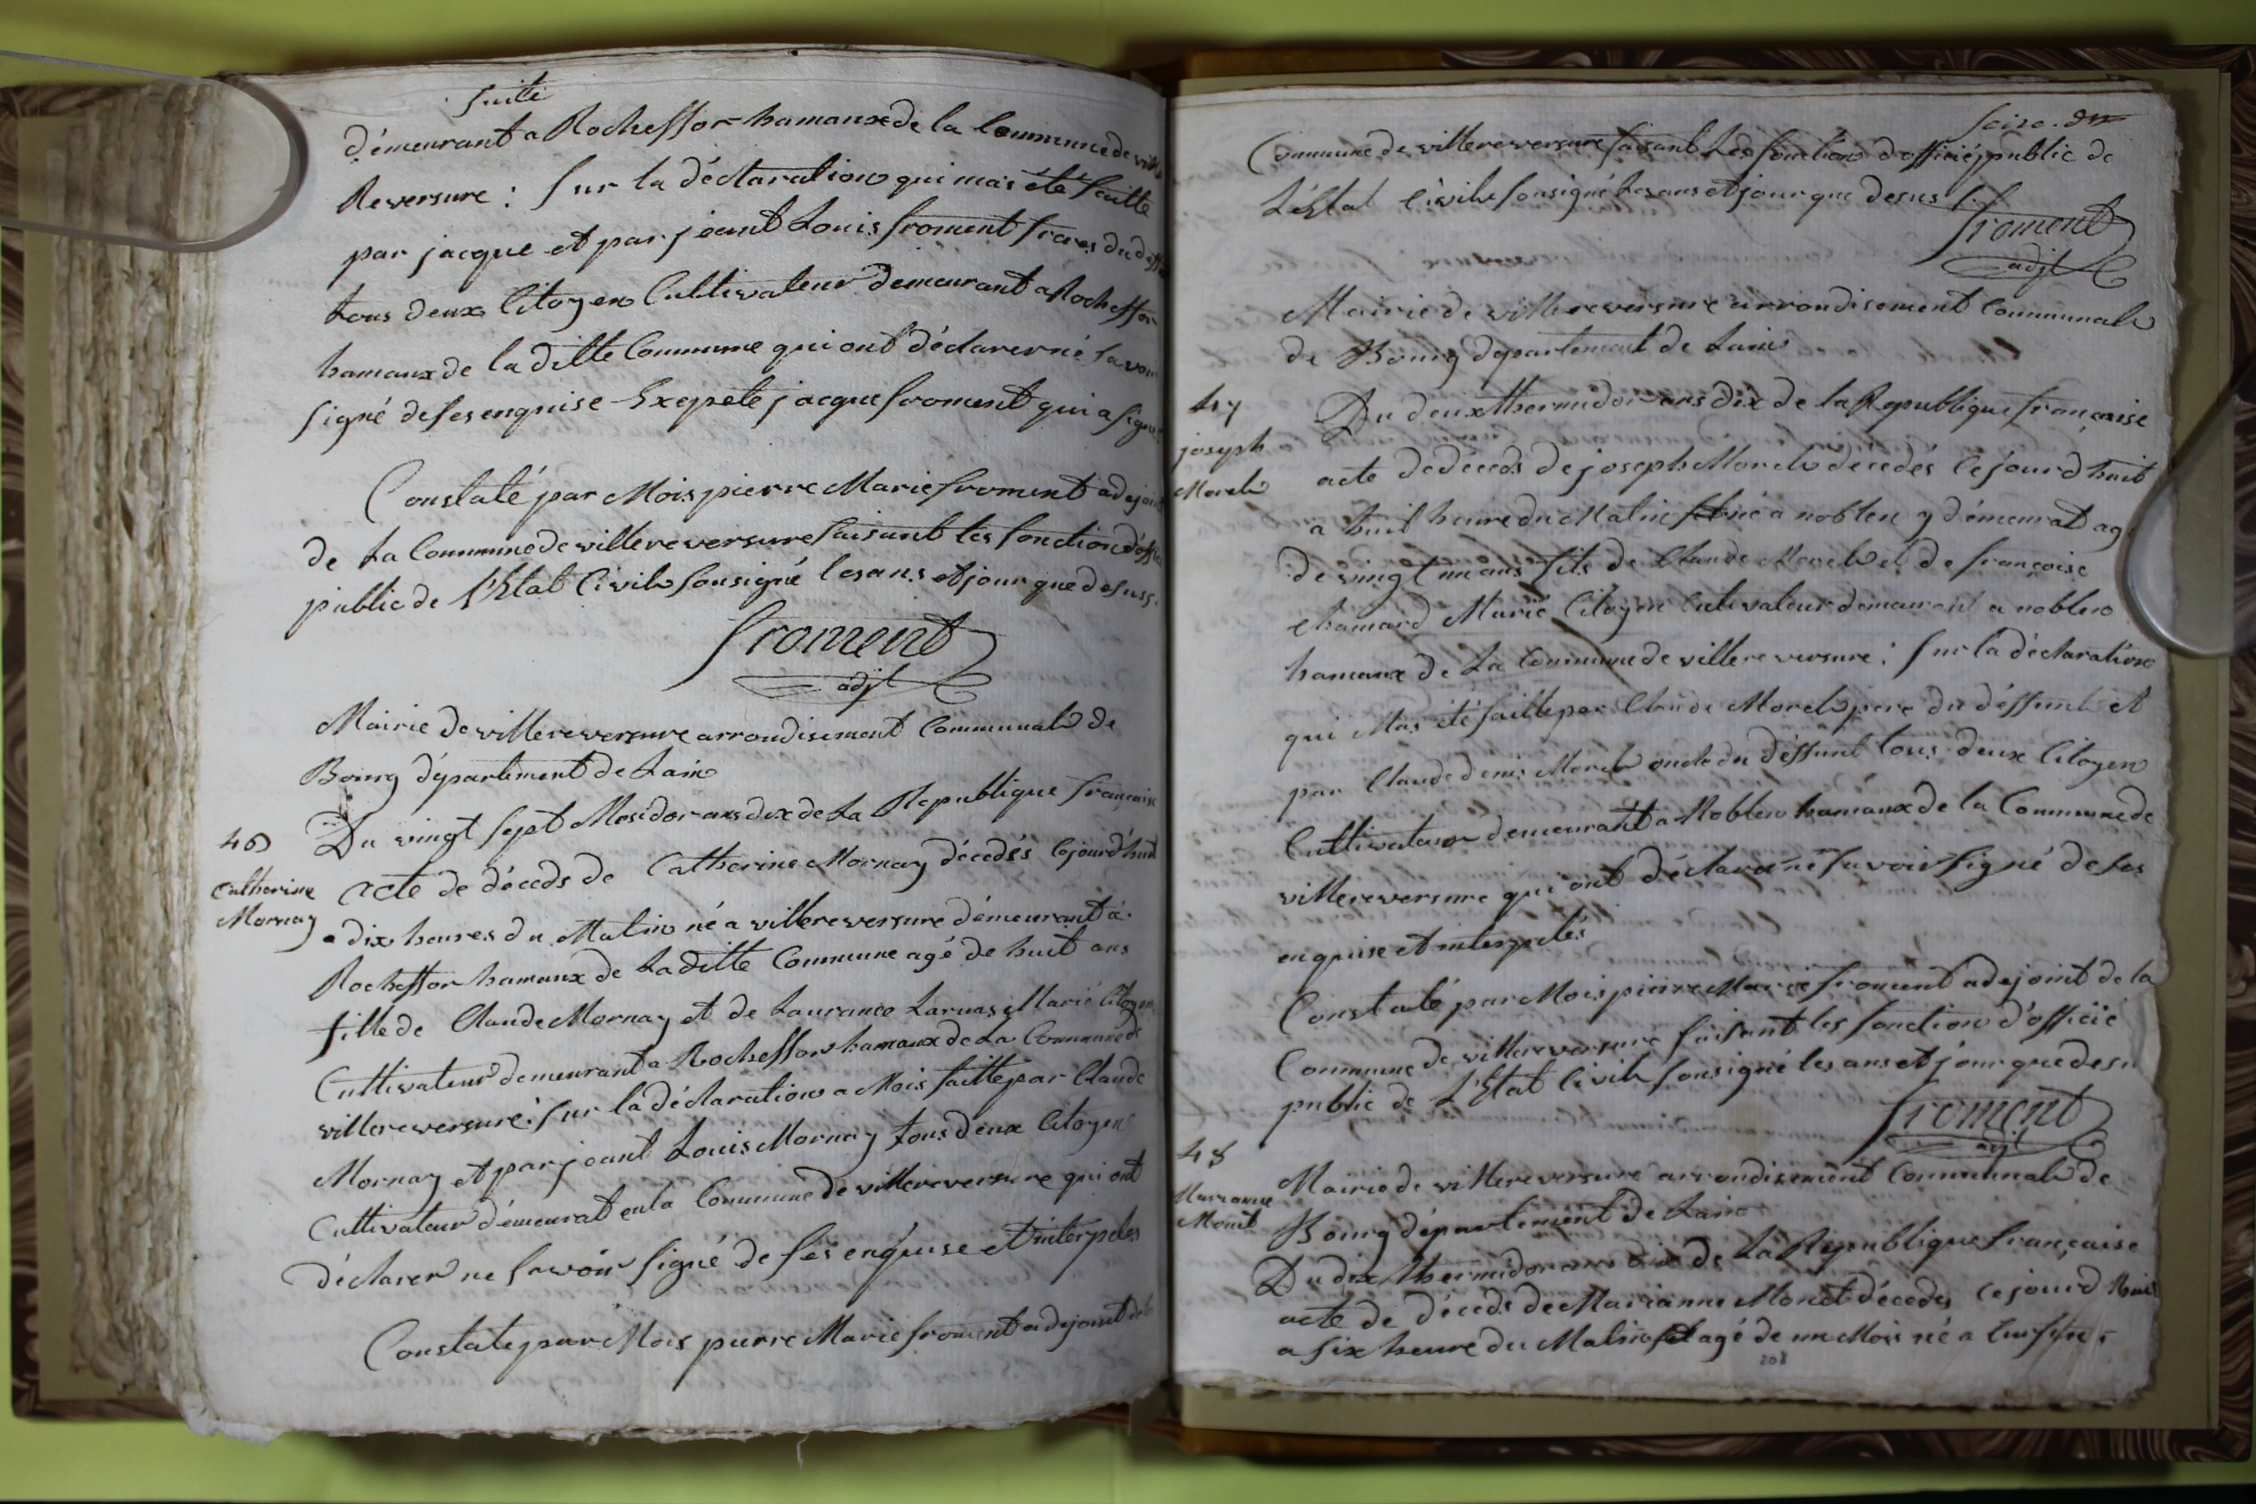 suite
démeurant a Rocheffor hamaux de la Commune de ville
Reversure : sur la déclaration qui mas été faitte
par jacque et par jeant Louis froment freres du deff
tous deux Citoyen Cultivateur demeurant a Rocheffor
hamaux de la ditte Commune qui ont déclarer né savoir
signé de ses enquise Exepeté jacque froment qui a signé
Constaté par Mois pierre Marie froment adejoint
de La Commune de villereversure faisant les fonction d'offi
public de l'Etat Civile sousigné les ans et jour que desuss.
froment
adjt
Mairie de villereversure arrondisement Communale de
Bourg département de Lain
46
Catherine
Mornay
Du vingt sept Mesidor ans dix de La Republique française
acte de déceds de Catherine Mornay décedés Cejourd'huit
a dix heures du Matin né a villereversure démeurant a
Rocheffor hamaux de La ditte Commune agé de huit ans
fille de Claude Mornay et de Laurance Marié Citoyen
Cultivateur demeurant a Rocheffor hamaux de La Commune de
villereversure : sur la déclaration a Mois faitte par Claude
Mornay et par jeant Louis Mornay tous deux Citoyen
Cultivateur démeurat en la Commune de villereversure qui ont
déclarer ne savoir signé de ses enquise et interpelés
Constate par Mois pierre Marie froment adejoint de la
Commune de villereversure faisant Les fonction d'officié public de
L'Etat Civile sousigné Les ans et jour que desus
froment
adjt
Mairie de villereversure arrondisement Communale
de Bourg département de Lain
47
joseph
Morel
Du deux thermidor ans dix de la Republique française
acte de deceds de joseph Morel decedés Cejourd huit
a huit heure du Matin né a noblen y démeurat agé
de vingt un ans fils de Claude Morel et de françoise
Chanard Marié Citoyen Cultivateur demeurant a noblen
hamaux de La Commune de villereversure : sur la déclaration
qui Mas été faitte par Claude Morel pere du déffunt et
par Claude denis Morel oncle du déffunt tous deux Citoyen
Cultivateur demeurant a Noblen hamaux de la Commune de
villereversure qui ont déclaré né savoir signé de ses
enquise et interpelés
Constaté par Mois pierre Marie froment adejoint de la
Commune de villereversure faisant les fonction d'officié
public de L'Etat Civile sousigné les ans et jour que desu
froment
adjt
48
Marianne
Monet
Mairie de villereversure arrondisement Communale de
Bourg département de Lain
Du dix thermidor ans dix de La Republique française
acte de déceds de Marianne Monet décedés cejourd huit
a six heure du Matin agé de un Mois né a
208